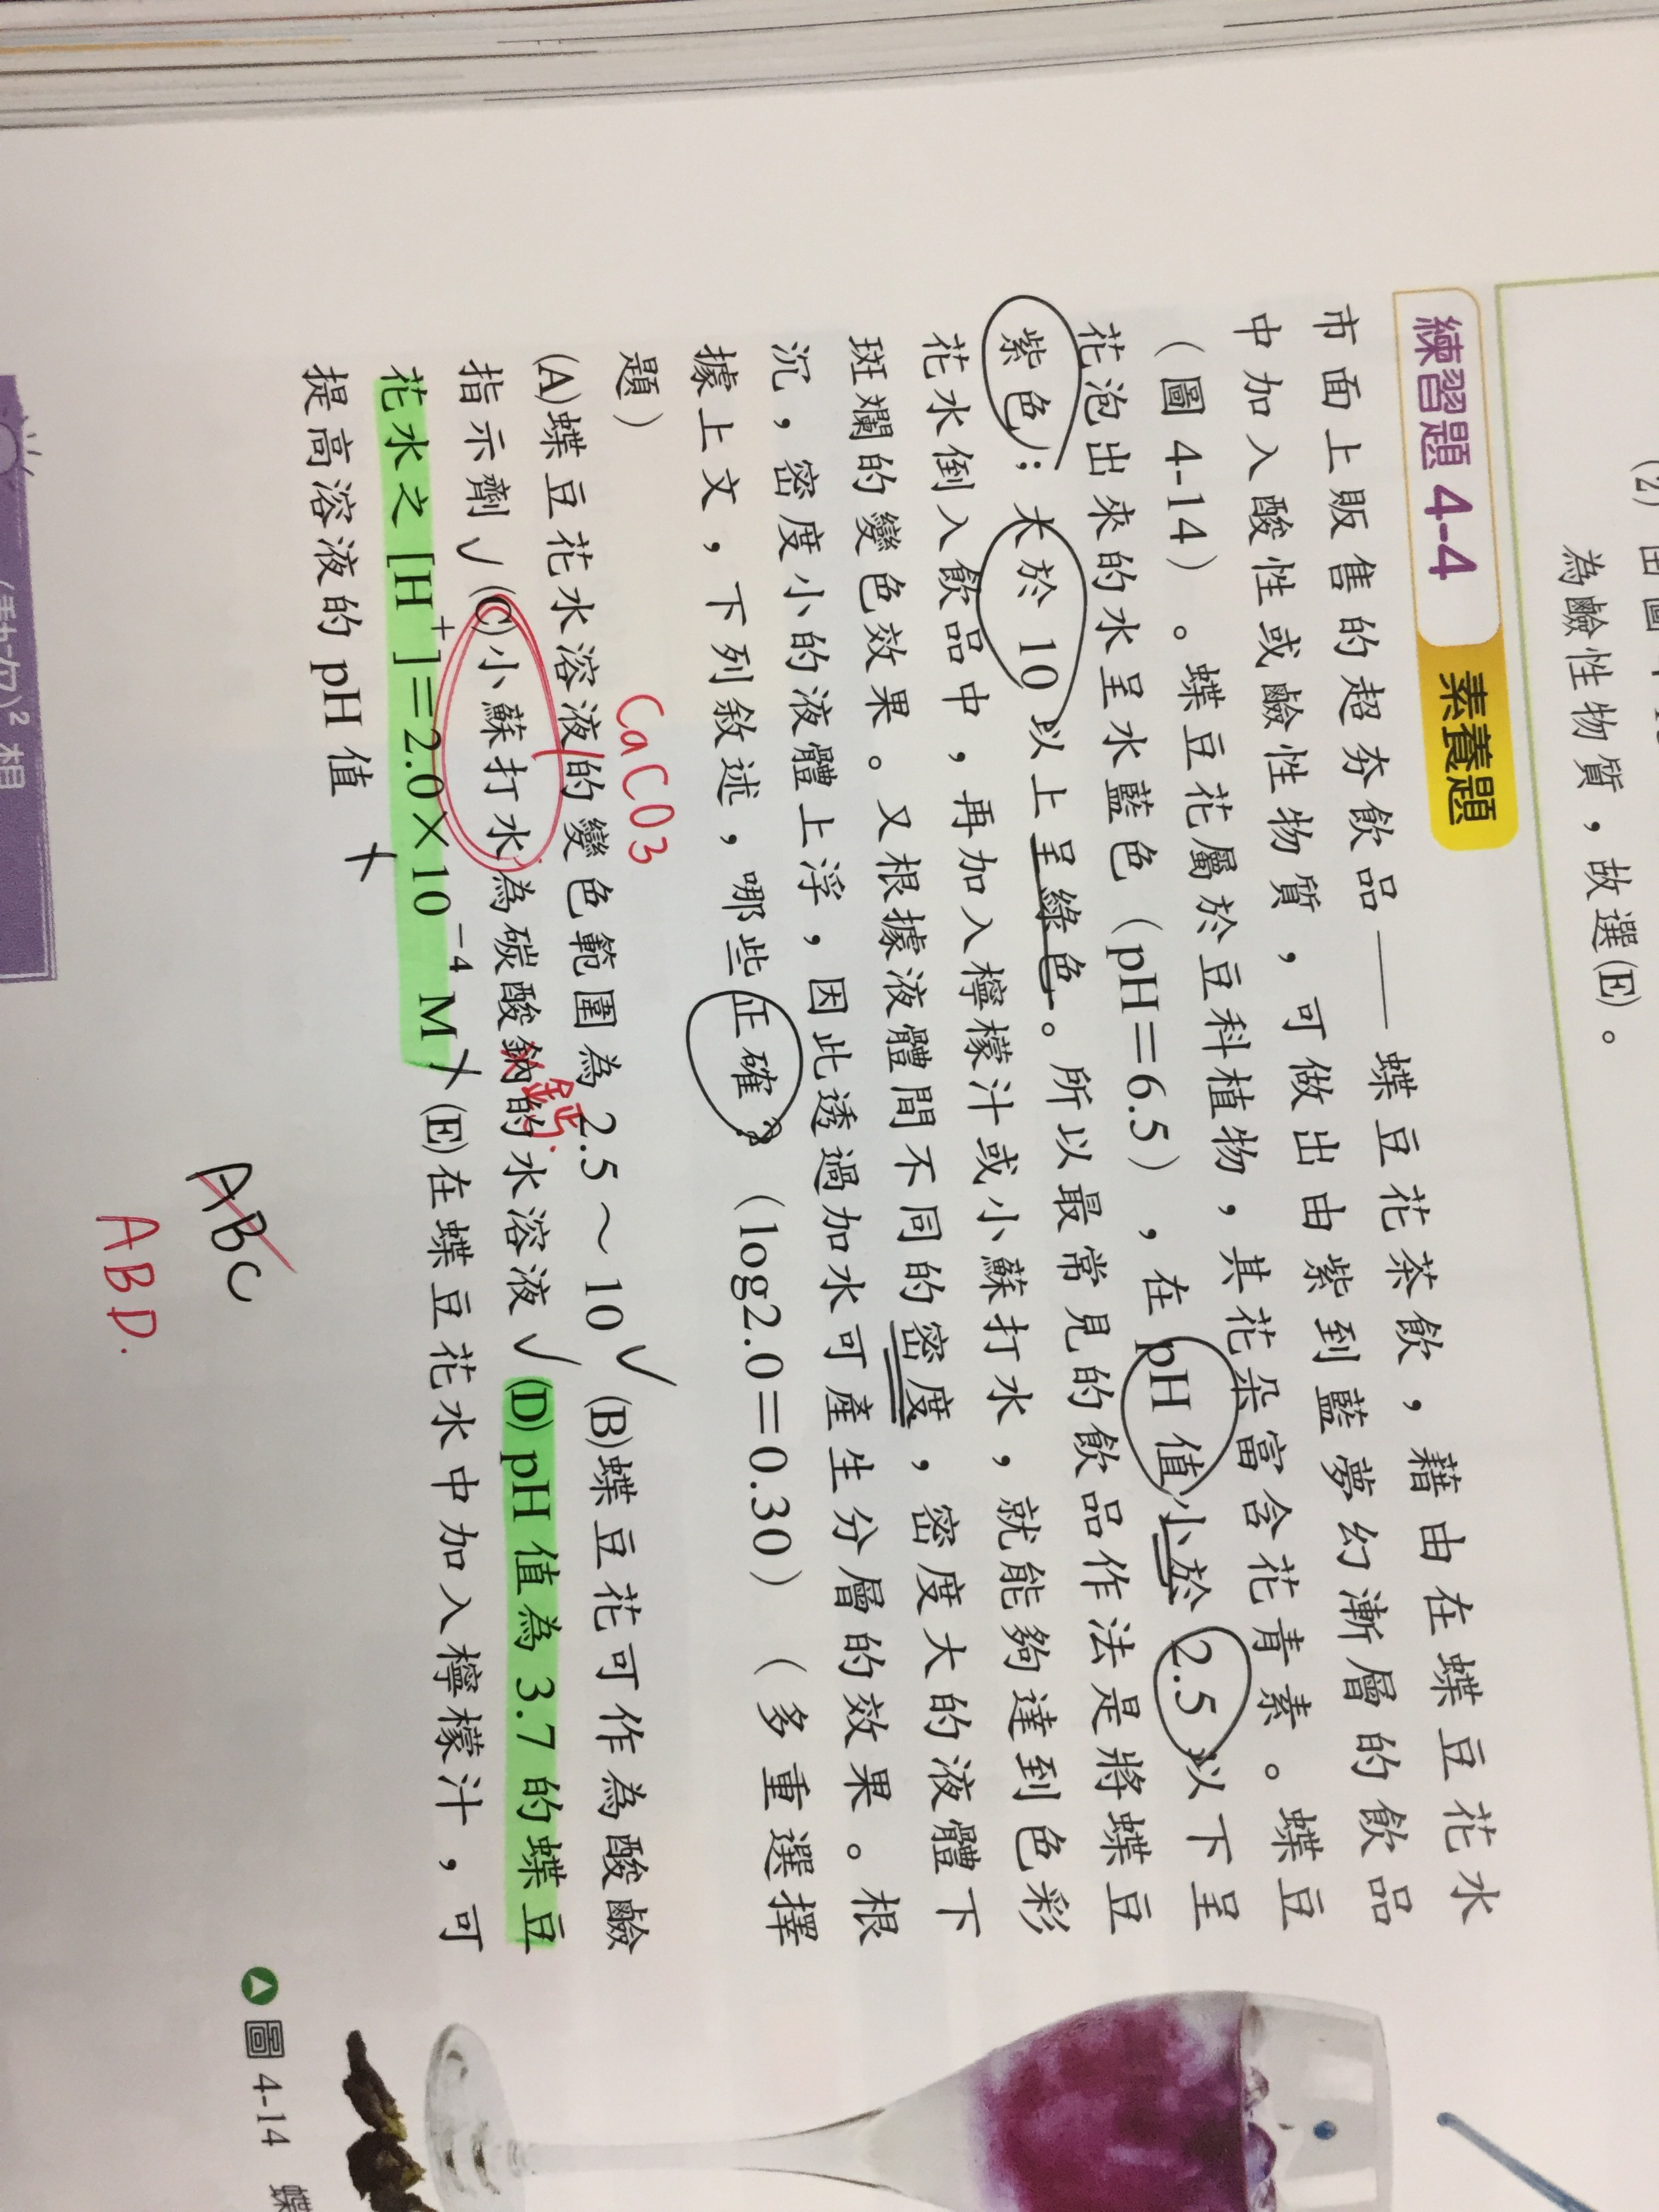 為鹼性物質，故選(E)。
練習題 4-4 素養題
市面上販售的超夯飲品——蝶豆花茶飲，藉由在蝶豆花水
中加入酸性或鹼性物質，可做出由紫到藍夢幻漸層的飲品
（圖 4-14）。蝶豆花屬於豆科植物，其花朵富含花青素。蝶豆
花泡出來的水呈水藍色（pH＝6.5），在 pH 值小於 2.5 以下呈
紫色；大於 10 以上呈綠色。所以最常見的飲品作法是將蝶豆
花水倒入飲品中，再加入檸檬汁或小蘇打水，就能夠達到色彩
斑斕的變色效果。又根據液體間不同的密度，密度大的液體下
沉，密度小的液體上浮，因此透過加水可產生分層的效果。根
據上文，下列敘述，哪些正確？（log2.0＝0.30）（多重選擇
題）
CaCO3
(A)蝶豆花水溶液的變色範圍為 2.5～10 ✓ (B)蝶豆花可作為酸鹼
鈣
指示劑 ✓ (C)小蘇打水為碳酸鈉的水溶液 ✓ (D) pH 值為 3.7 的蝶豆
花水之 [H⁺]＝2.0×10⁻⁴ M (E)在蝶豆花水中加入檸檬汁，可
提高溶液的 pH 值
ABC
ABD.
圖 4-14 蝶